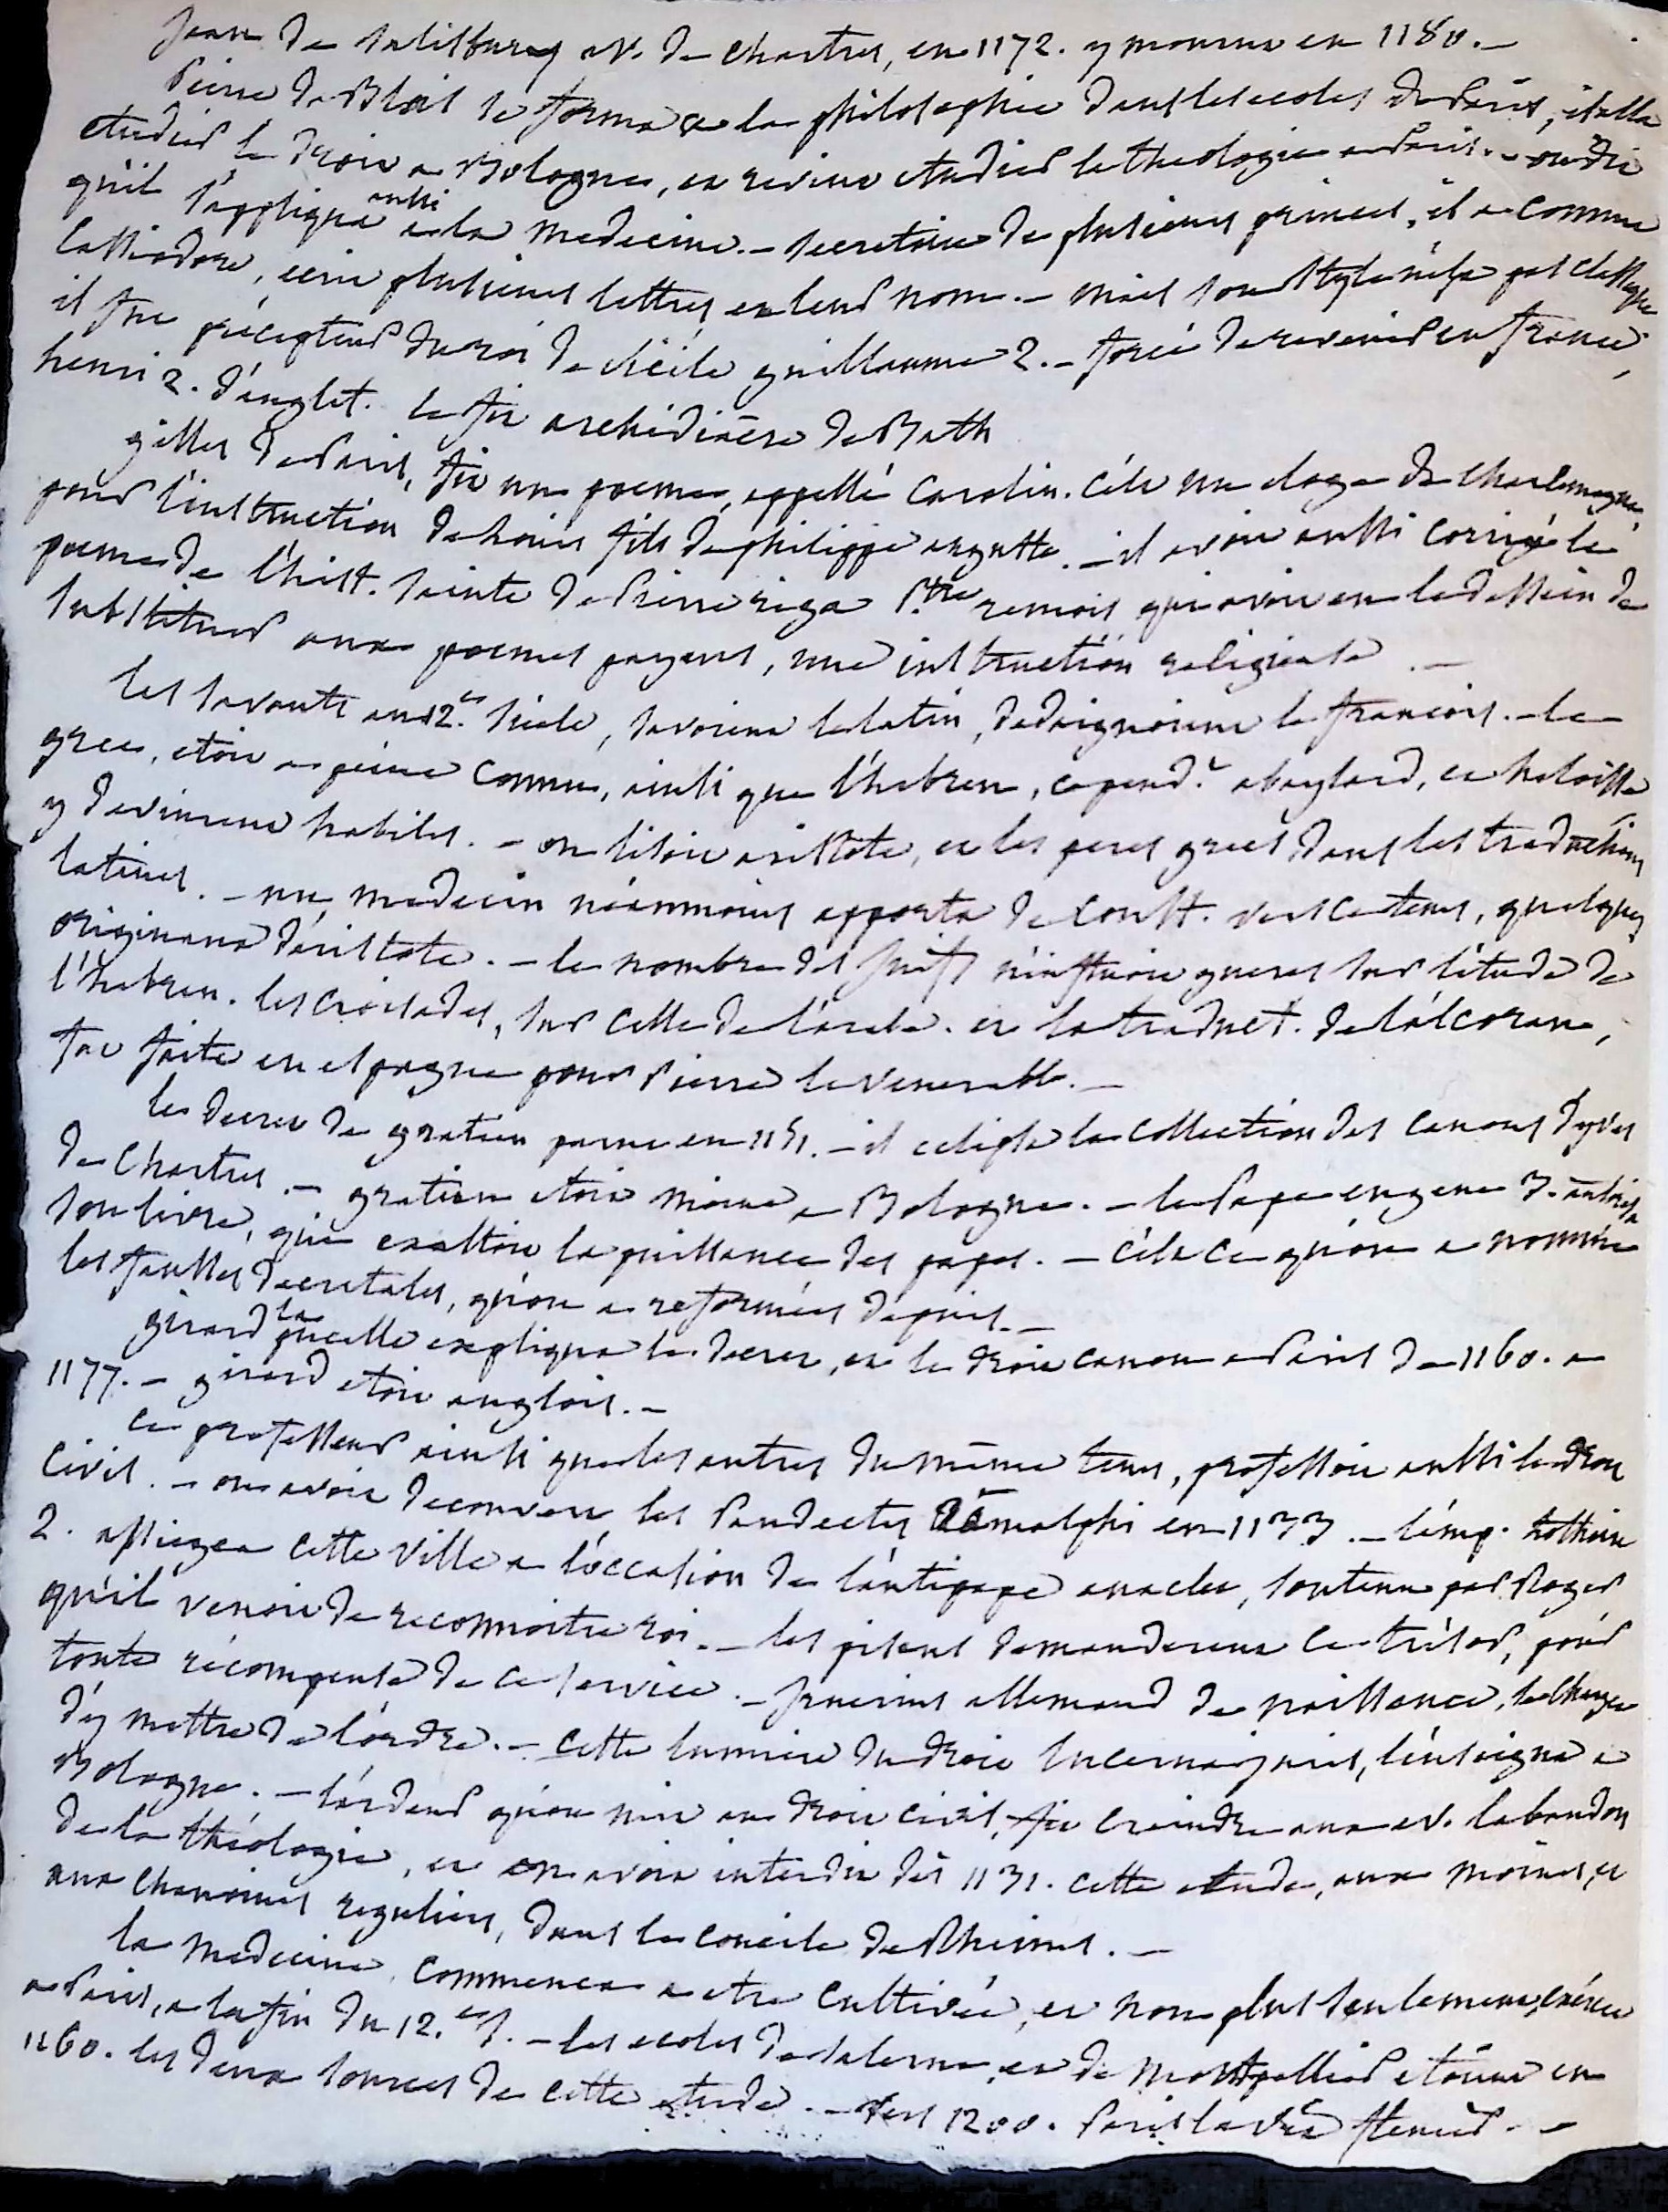 Jean de Salisbury ev. de Chartres, en 1172. y mourut en 1180. —
Pierre de Blois se forma a la philosophie dans les ecoles de Paris, il alla
etudier le droit a Bologne, et revint etudier la theologie a Paris. — on dit
qu'il s'appliqua aussi a la medecine. — secretaire de plusieurs princes, il a comme
Cassiodore, ecrit plusieurs lettres en leur nom. — mais son style n'est pas classique
il fut précepteur du roi de Sicile guillaume 2. — forcé de revenir en france,
henri 2. d'anglet. le fit archidiacre de Bath
gilles de Paris, fit un poeme, appellé Carolin. c'est un eloge de Charlemagne,
pour l'instruction de Louis fils de philippe auguste. — il avoit aussi corrigé le
poeme de l'hist. sainte de Pierre riga Ptre remois qui avoit eu le dessein de
substituer aux poemes payens, une instruction religieuse. —
les savants au 12.e siècle, savoient le latin, dedaignoient le francois. — le
grec, etoit a peine connu, ainsi que l'hebreu, cepend.t abaylard, et heloisse
y devinrent habiles. — on lisoit aristote, et les peres grecs dans les traductions
latines. — un medecin néanmoins apporta de Const. vers ce tems, quelques
originaux d'aristote. — le nombre des juifs n'influoit gueres sur l'étude de
l'hebreu. les croisades, sur celle de l'arabe. et la traduct. de l'alcoran,
fut faite en espagne pour Pierre le venerable. —
le decret de gratien parut en 1151. — il eclipsa la collection des canons d'yves
de Chartres. — gratien etoit moine a Bologne. — le Pape eugene 3. autorisa
son livre, qui exaltoit la puissance des papes. — c'est ce qu'on a nommé
les fausses decretales, qu'on a reformées depuis. —
girard la pucelle expliqua le decret, et le droit canon a Paris de 1160. a
1177. — girard etoit anglois. —
ce professeur ainsi que les autres du même tems, professoit aussi le droit
civil. — on avoit decouvert les Pandectes a amalphi en 1133. — l'emp. Lothaire
2. assiegea cette ville a l'occasion de l'antipape anaclet, soutenu par Roger
qu'il venoit de reconnoitre roi. — les pisans demanderent ce trésor, pour
toute récompense de ce service. — Irnerius allemand de naissance, se chargea
d'y mettre de l'ordre. — cette lumiere du droit lucerna juris, l'enseigna a
Bologne. — l'ardeur qu'on mit au droit civil, fit craindre aux ev. l'abandon
de la théologie, et on avoit interdit dès 1131. cette etude, aux moines, et
aux Chanoines reguliers, dans le concile de Rheims. —
la medecine commenca a etre cultivée, et non plus seulement exercée
a Paris, a la fin du 12.e s. — les ecoles de Salerne, et de Montpellier etoient en
1160. les deux sources de cette etude. — vers 1200. Paris la vit fleurir. —